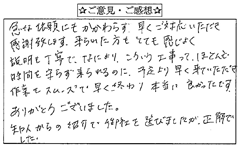 ☆ご意見・ご感想☆
急な依頼にもかかわらず 早くご対応いただき
感謝致します。来られた方も とても感じよく
説明も丁寧で、なにより、こういう工事って、ほとんど
時間を守らず来られるのに、予定より早く来ていただき
作業もスムーズで早く終わり 本当に良かったです。
ありがとうございました。
知人からの紹介で御社を選びましたが、正解で
した。